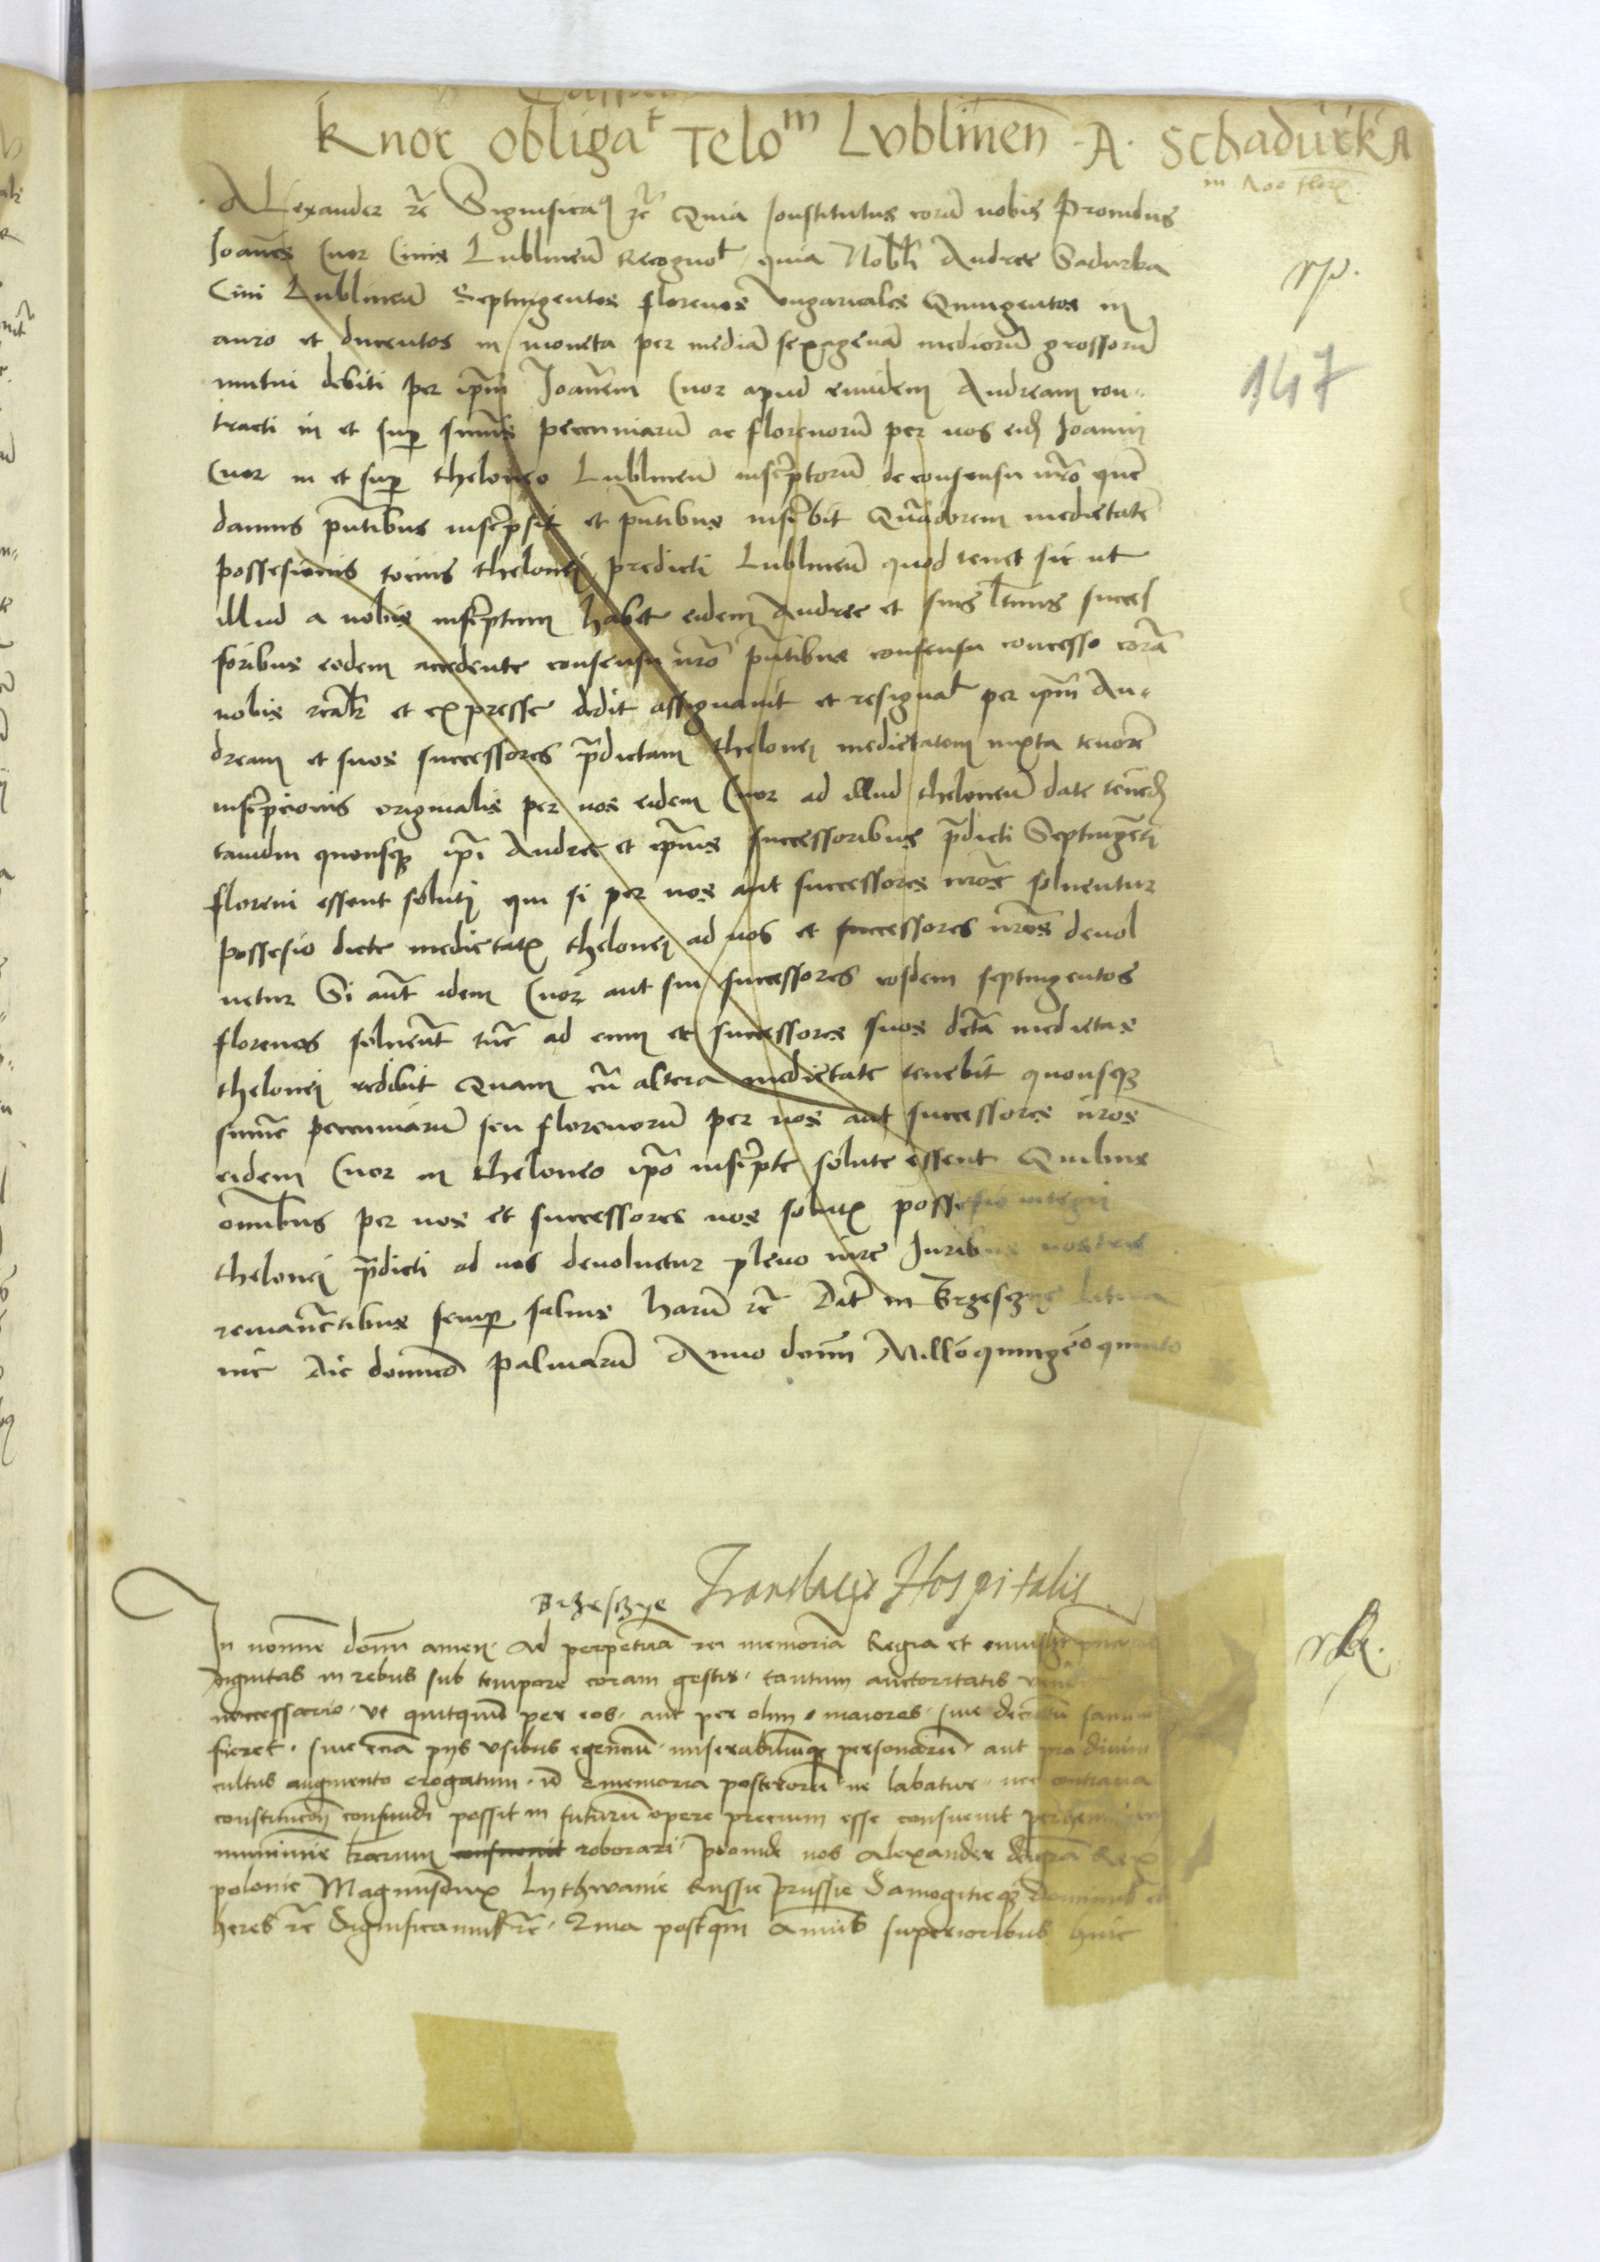 Knor obligat Telom Lublinen A. Schadurka
in 700 flor.
Alexander rc Significaꝫ rc Quia Constitutus corā nobis Providus
Joanēs Cnor Civis Lublineñ Recognot quia Nobli Andree Sadurka
Civi Lublineñ Septingentos florenos Ungaricales Quingentos in
auro et ducentos in moneta per mediā sexagenā mediorū grossorū
mutui debiti per ipm̄ Joanēm Cnor apud eundem Andream con-
tracti in et sup summis pecuniarū ac florenorū per nos eid Joanni
Cnor in et sup theloneo Lublineñ inscriptorū de consensu nr̄o quē
damus pn̄tibus inscripsit et pn̄tibus inscribit Quadorem medietatē
possesionis tocius thelonei predicti Lublineñ quod tenet sic ut
illud a nobis inscriptum habet eidem Andree et suis ltimis succes
soribus eodem accedente consensu nr̄o pn̄tibus consensu concesso corā
nobis realr et expresse dedit assignavit et resignat per ipm̄ An-
dream et suos successores p̄dictam thelonei medietatem iuxta tenorē
inscripcionis originalis per nos eidem Cnor ad illud theloneū date tenēd
tamdiu quousqꝫ ipi Andree et ipius successoribus p̄dicti Septingēti
floreni essent soluti qui si per nos aut successores nr̄os solventur
possesio dicte medietatꝭ thelonei ad nos et successores nr̄os devol
vetur Si aūt idem Cnor aut sui successores eosdem septingentos
florenos solverit tūc ad eum et successores suos dctā medietas
thelonei redibit Quam cū altera medietate tenebit quousqꝫ
sume pecuniarū seu florenorū per nos aut successores nr̄os
eidem Cnor in theloneo ipō inscripte solute essent Quibus
omībus per nos et successores nos solutꝭ possesio integri
thelonei p̄dicti ad nos devolvetur pleno iure Juribus nostris
remanētibus semp salvis Harū rc Dat in Brzesczye Litwa
nie Die dominico palmarū Anno domi Millō quingēo quinto
147
Brzesczye Translacio Hospitalis
In nomine domi amen. Ad perpetuā rei memoriā Regia et
dignitas in rebus sub tempore coram gestis. tantum auctoritatis
neccessario. Ut quitquid per eos. aut per olim maiores. sive
fieret. sive eciā pijs usibus egencium. miserabiliumqꝫ personarū. aut pro divini
cultus augmento erogatum. id memoria posterorū ne labatur. nec contraria
constitucōe confundi possit in futurū opere precium esse consuevit
munimine lr̄arum consuevit roborari. proinde nos Alexander dei gra Rex
polonie Magnusdux Lythwanie Russie prussie Samogitieqꝫ dominus et
heres rc Significamus rc. Quia postqm̄ Annis superioribus huic